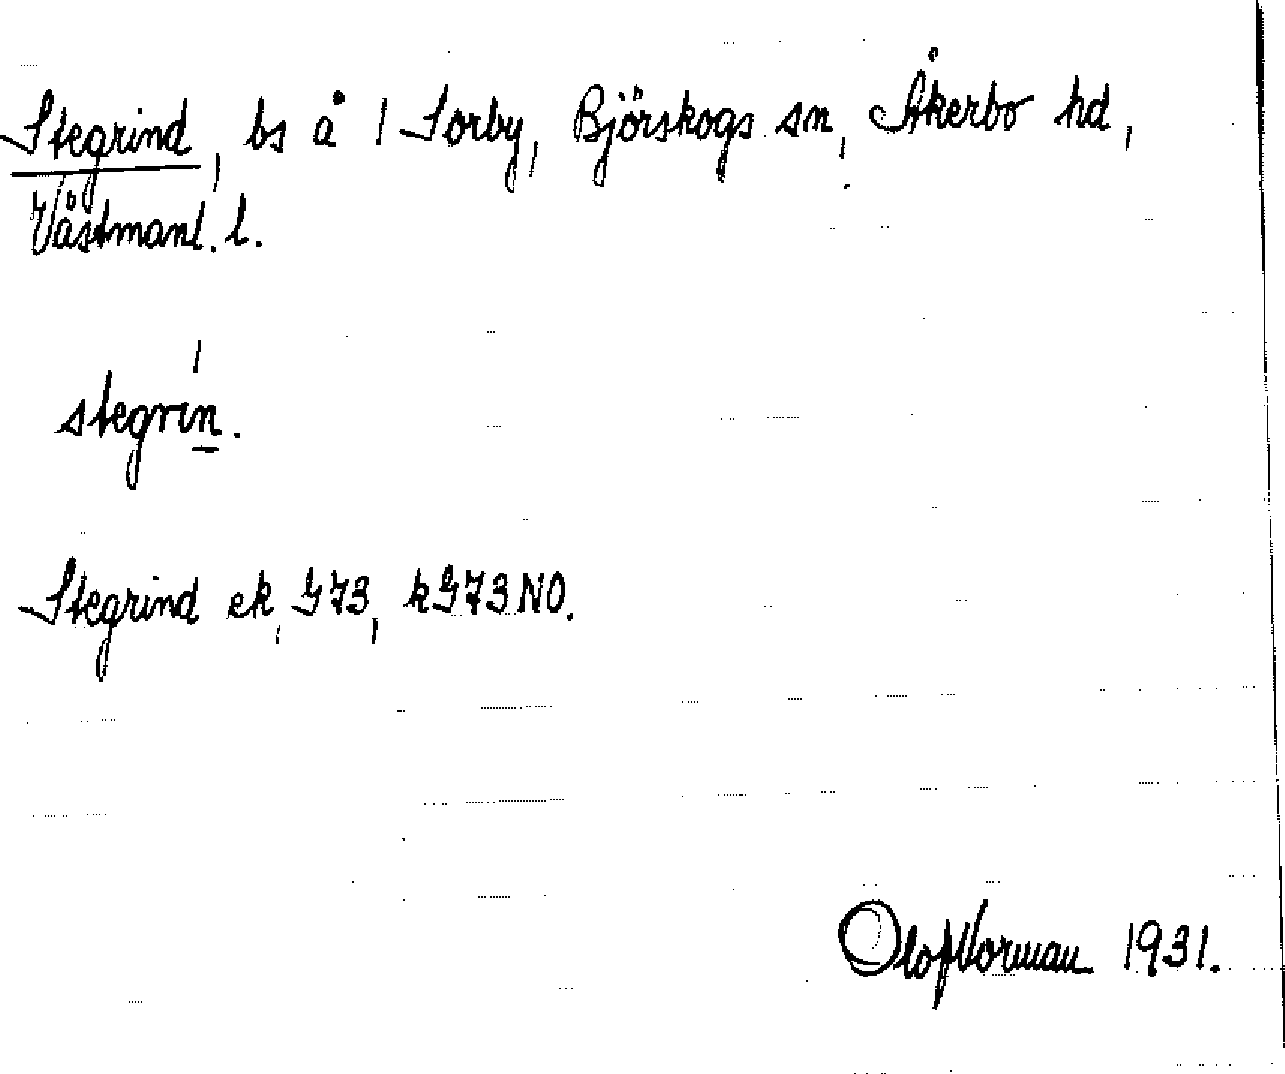 Stegrind, bs å 1 Sorby, Björskogs sn, Åkerbo hd,
Västmanl. l.
stegrin.
Stegrind ek, G73, kG73NO.
Olof Norman 1931.